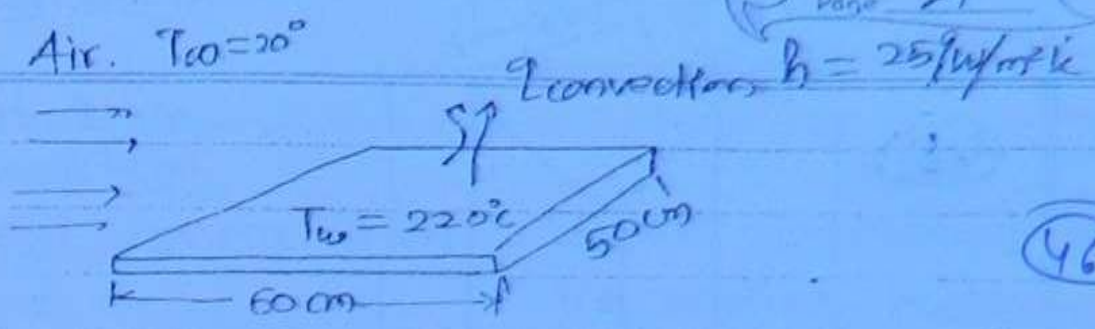 Air. T∞ = 20°
q convection h = 25 W/m² k
Tw = 220°c
50 cm
60 cm
46